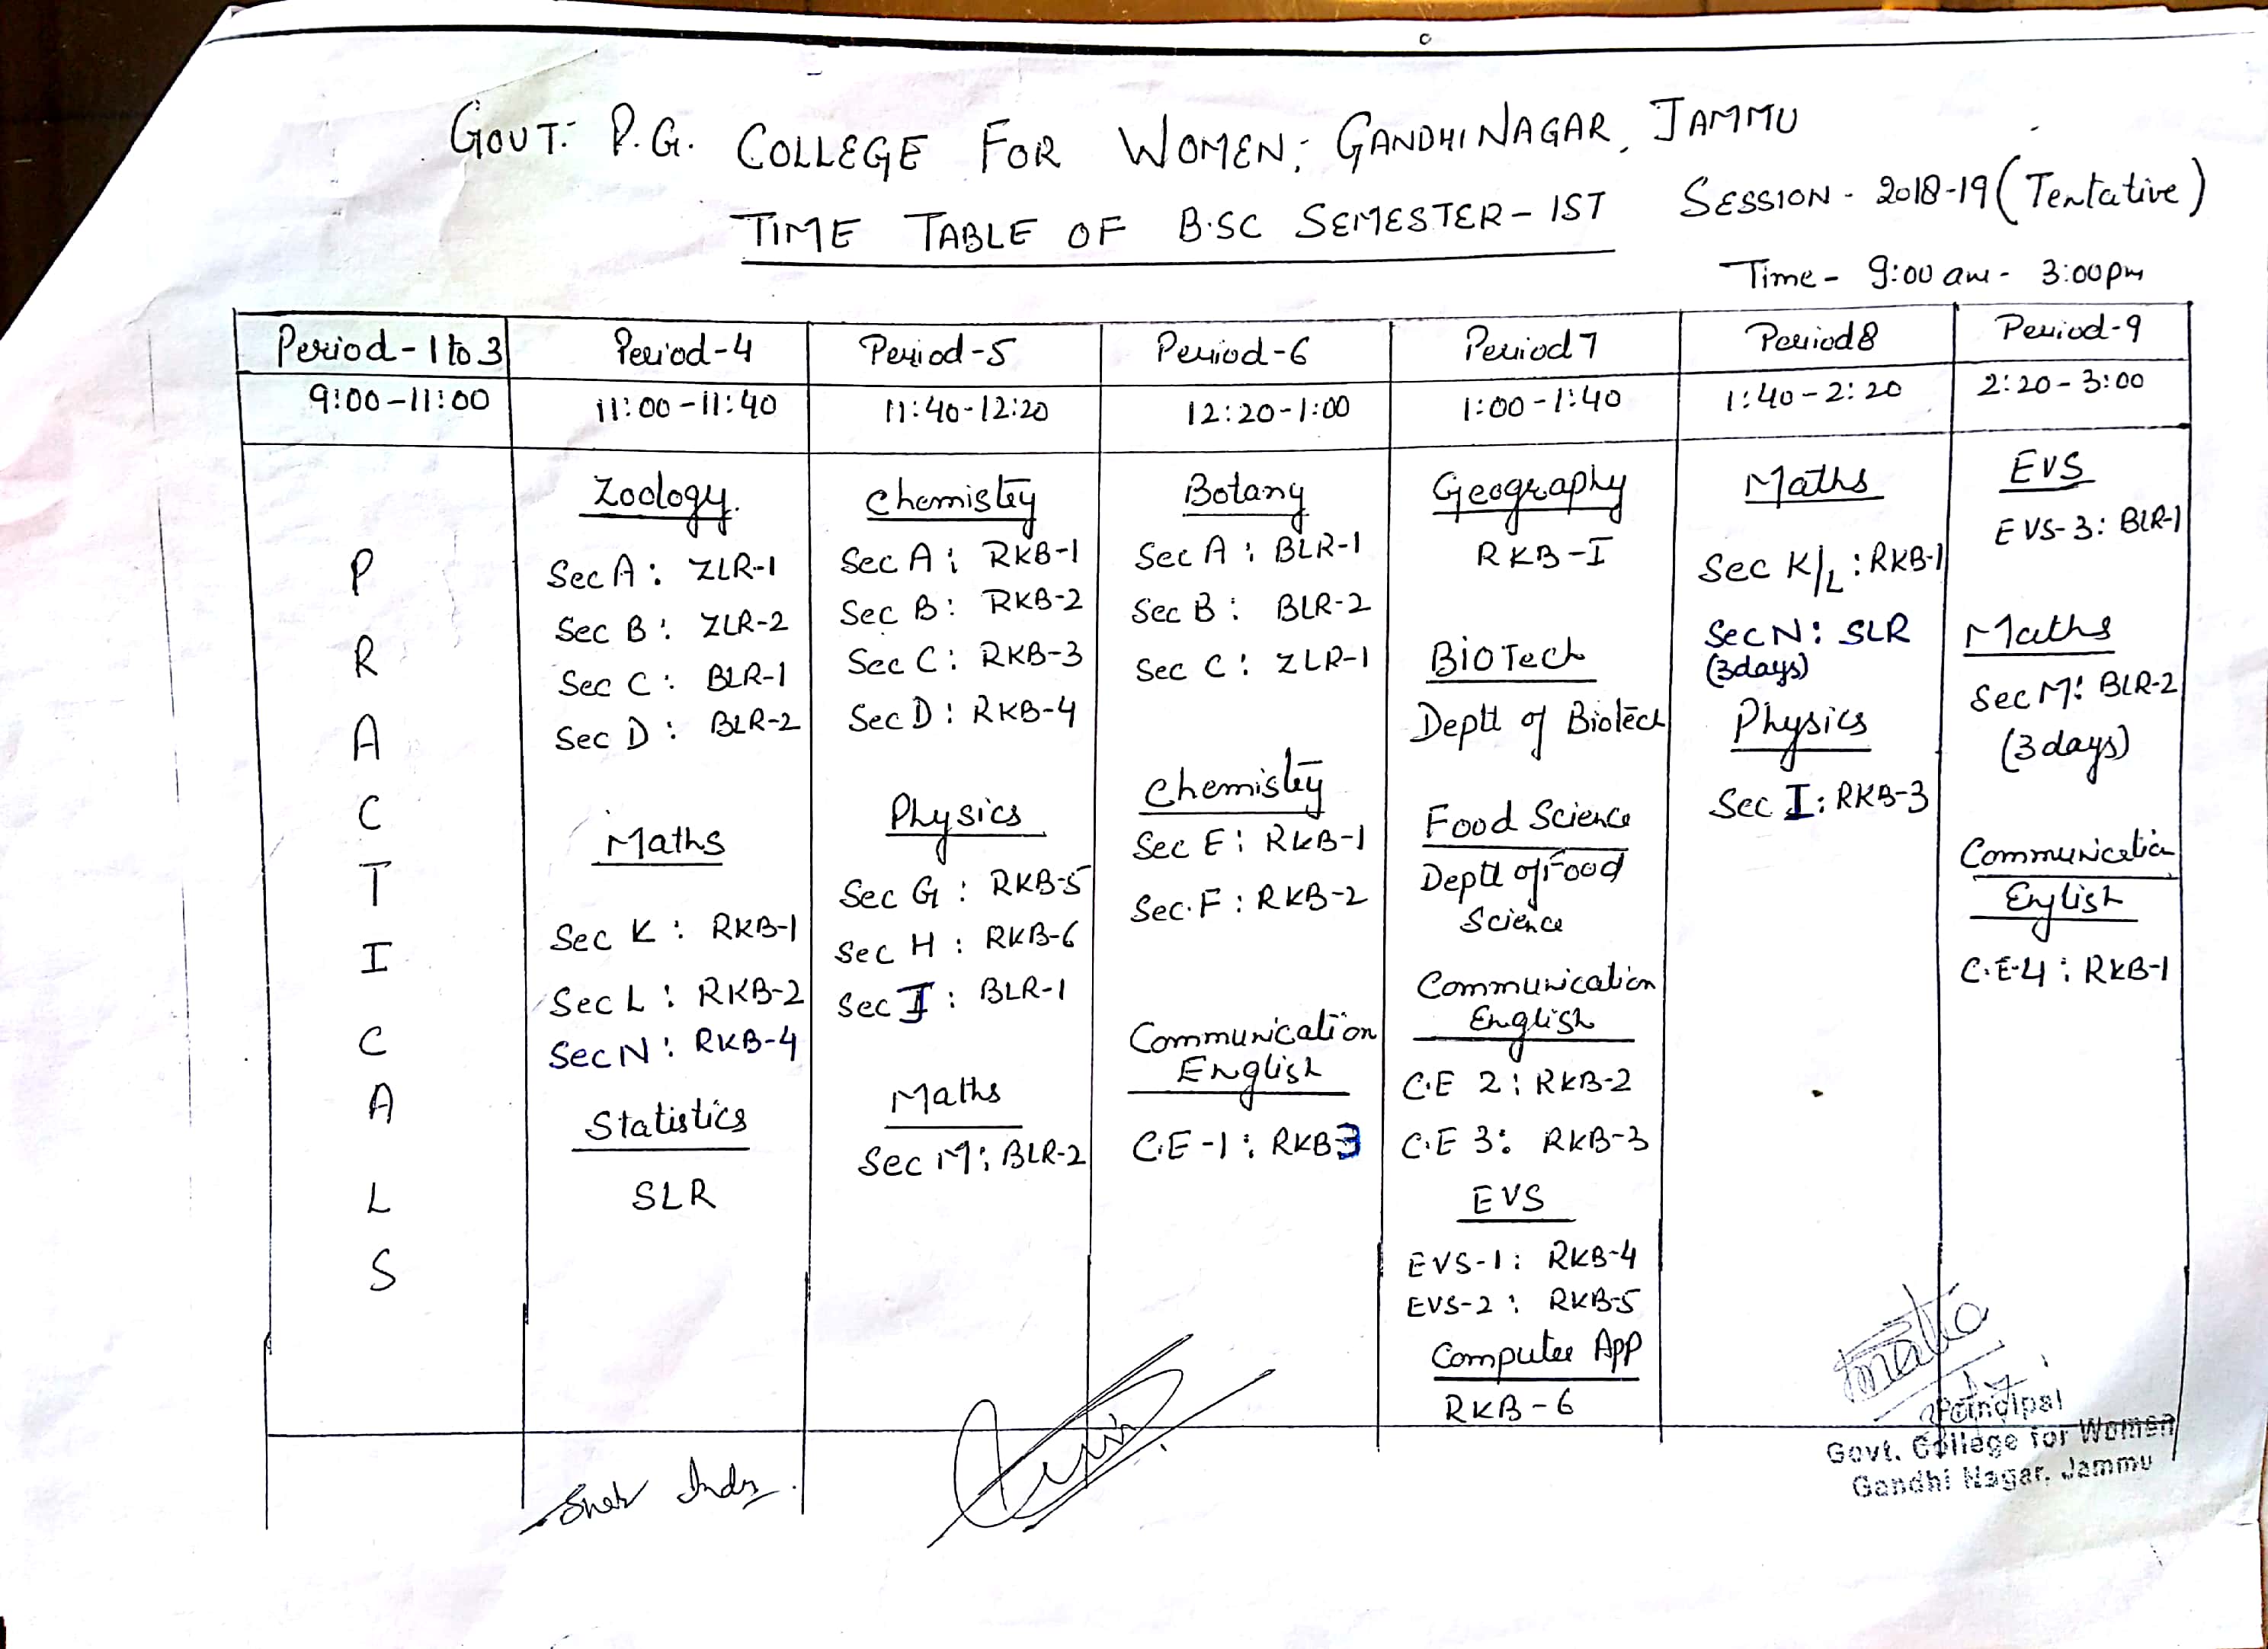 GOVT: P.G. COLLEGE FOR WOMEN; GANDHINAGAR, JAMMU
TIME TABLE OF B.SC SEMESTER-IST SESSION - 2018-19 (Tentative)
Time - 9:00 am - 3:00pm
Period-1 to 3 Period-4 Period-5 Period-6 Period 7 Period 8 Period-9
9:00-11:00 11:00-11:40 11:40-12:20 12:20-1:00 1:00-1:40 1:40-2:20 2:20-3:00
P
R
A
C
T
I
C
A
L
S
Zoology.
Sec A: ZLR-1
Sec B: ZLR-2
Sec C: BLR-1
Sec D: BLR-2
Maths
Sec K: RKB-1
Sec L: RKB-2
Sec N: RKB-4
Statistics
SLR
Chemistry
Sec A: RKB-1
Sec B: RKB-2
Sec C: RKB-3
Sec D: RKB-4
Physics
Sec G: RKB-5
Sec H: RKB-6
Sec I: BLR-1
Maths
Sec M: BLR-2
Botany
Sec A: BLR-1
Sec B: BLR-2
Sec C: ZLR-1
Chemistry
Sec E: RKB-1
Sec. F: RKB-2
Communication
English
C.E-1: RKB3
Geography
RKB-I
BioTech
Deptt of Biotech
Food Science
Deptt of Food
Science
Communication
English
C.E 2: RKB-2
C.E 3: RKB-3
EVS
EVS-1: RKB-4
EVS-2: RKB-5
Computer App
RKB-6
Maths
Sec K/L: RKB-1
Sec N: SLR
(3days)
Physics
Sec I: RKB-3
EVS
EVS-3: BLR-1
Maths
Sec M: BLR-2
(3 days)
Communication
English
C.E-4: RKB-1
Principal
Govt. College for Women
Gandhi Nagar, Jammu